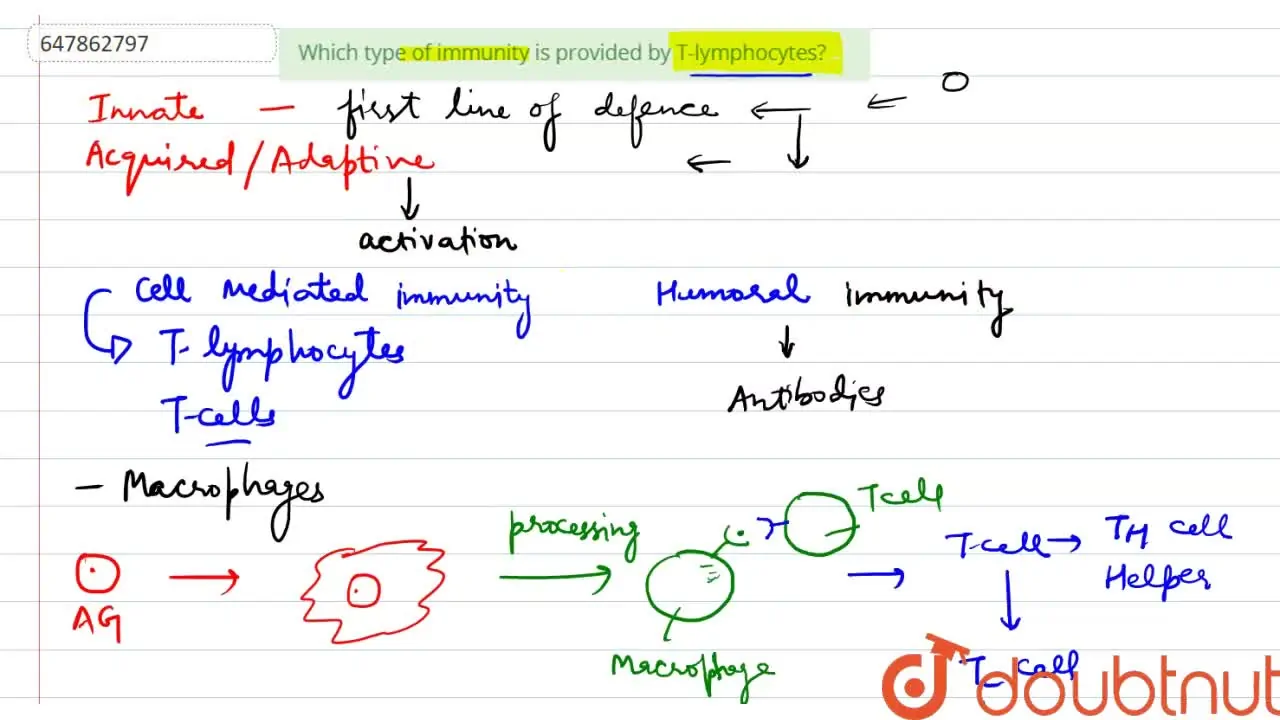 647862797
Which type of immunity is provided by T-lymphocytes?
Innate — first line of defence
Acquired/Adaptive
activation
Cell mediated immunity
Humoral immunity
T-lymphocytes
Antibodies
T-cells
— Macrophages
T cell
processing
T-cell → TH cell
Helper
AG
Macrophage
T cell
doubtnut